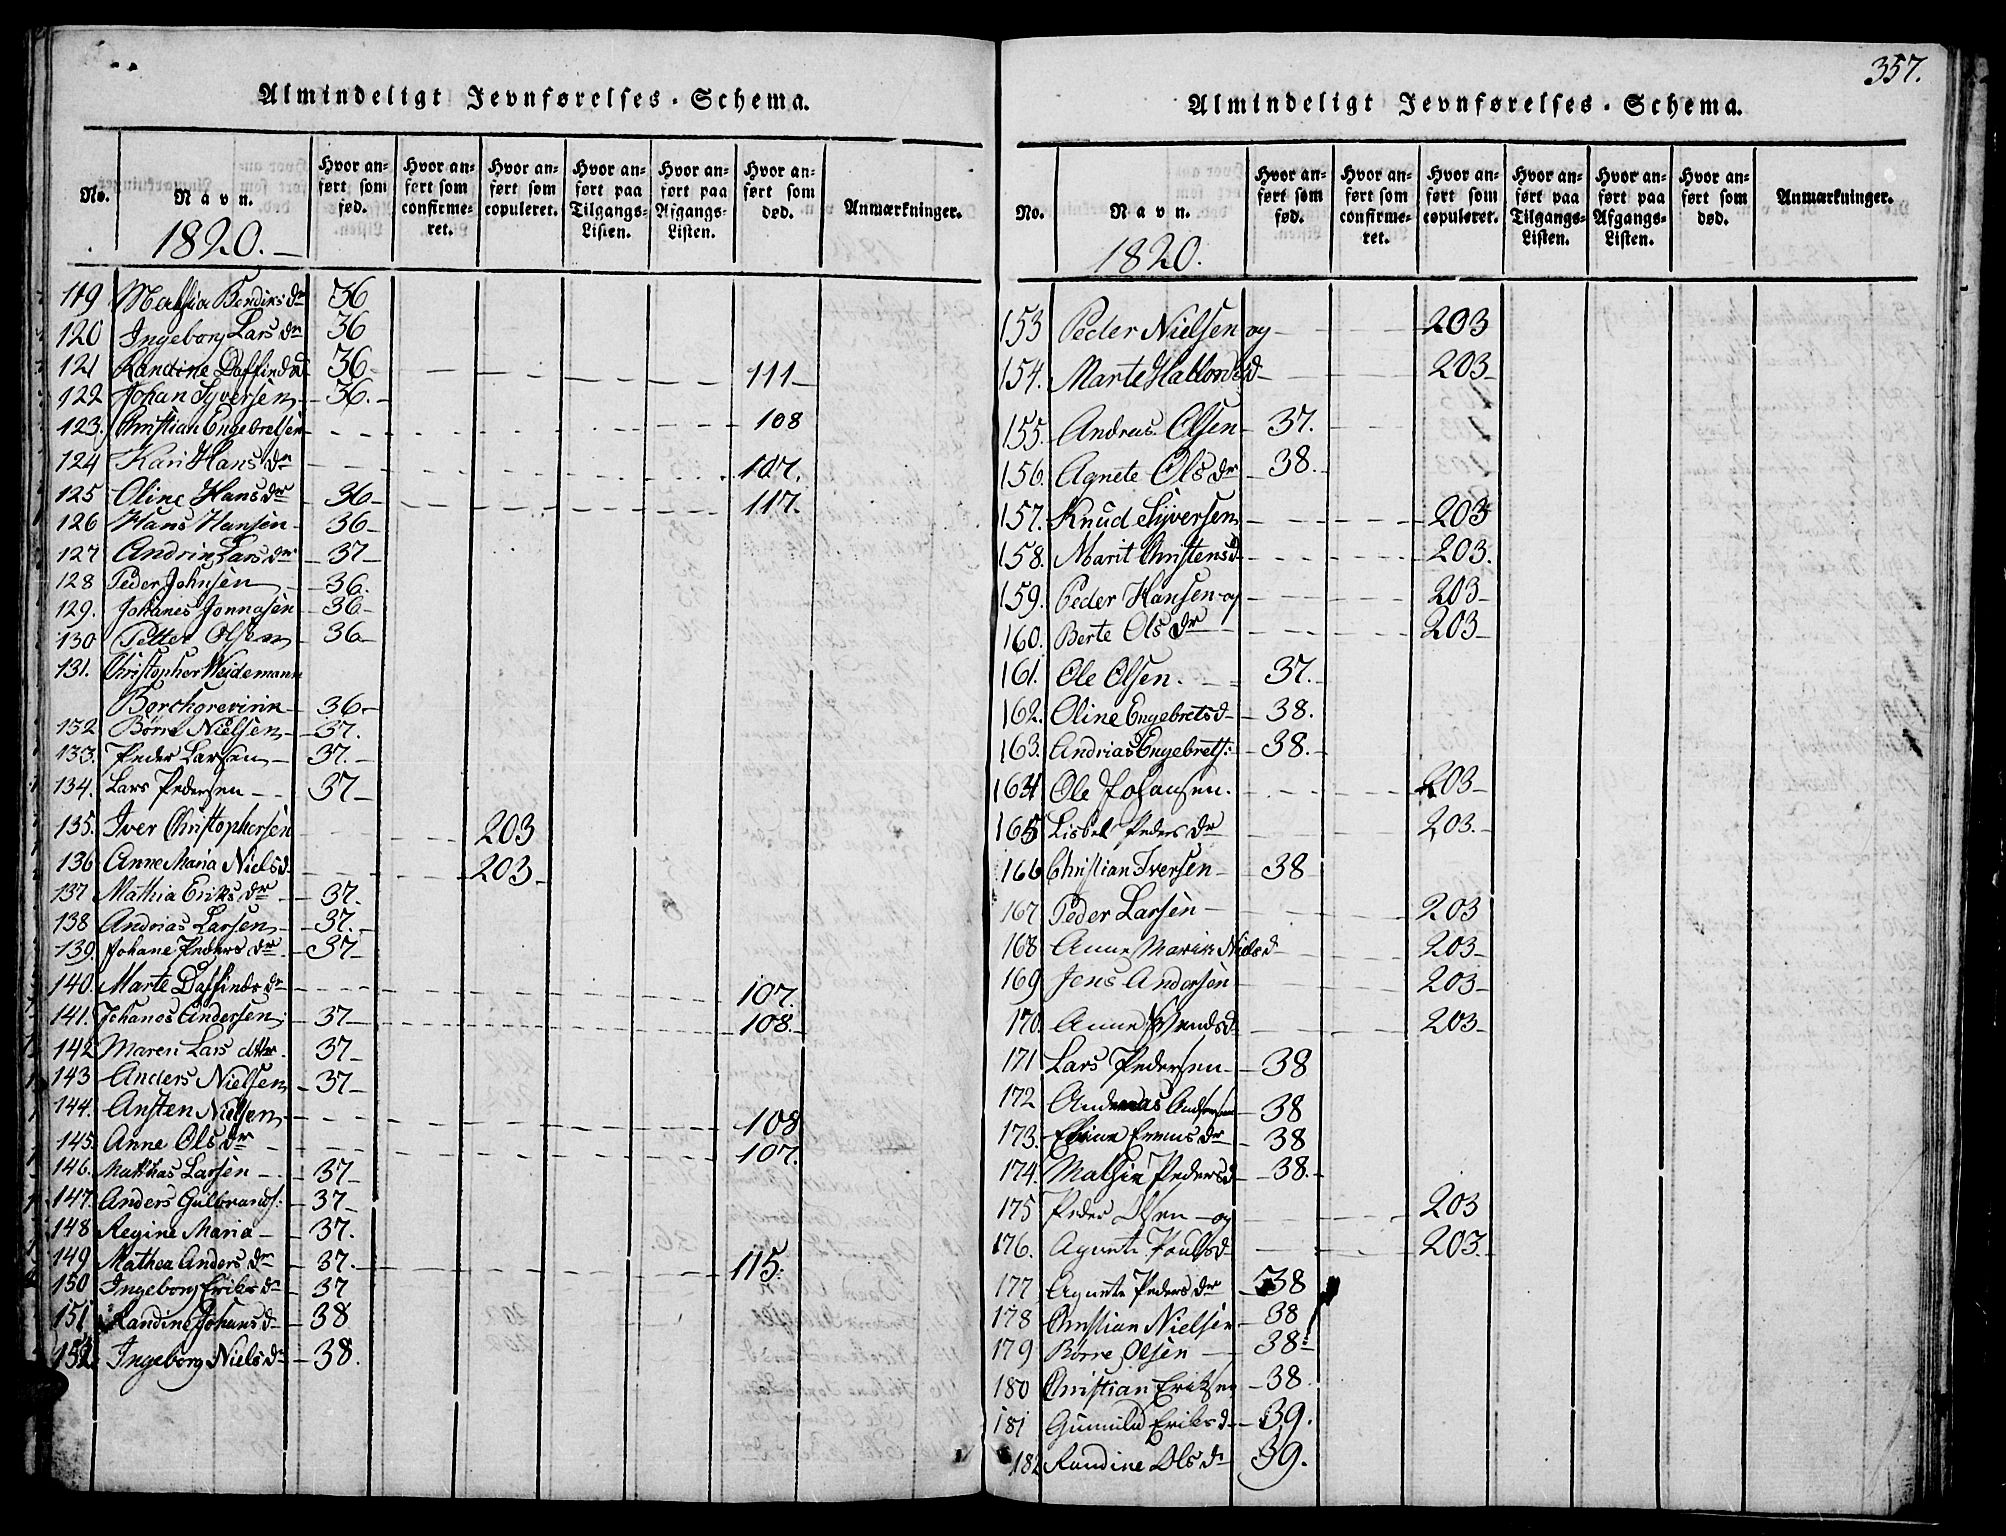 Almindeligt Jevnførelses-Schema.
No. Navn. Hvor anført som født. Hvor anført som confirmeret. Hvor anført som copuleret. Hvor anført paa Tilgangs-Listen. Hvor anført paa Afgangs-Listen. Hvor anført som død. Anmærkninger.
1820.
119 Mathia Bendiks dr 36
120 Ingeborg Lars dr 36
121 Randine Daffind d 36 111
122 Johan Syversen 36.
123. Christian Engebretsen 108
124 Kari Hans dr 107.
125 Oline Hans dr 36 117.
126 Hans Hansen 36
127 Andrin Lars dr 37
128 Peder Johnsen 36.
129. Johanes Jonnasen 36
130 Petter Olsen 36
131. Christopher Weidemann
Borchgrevinn 36.
132 Børre Nielsen 37.
133. Peder Larsen 37.
134. Lars Pedersen 37
135. Iver Christophersen 203
136 Anne Maria Niels d 203
137 Mathia Eriks dr 37.
138 Andrias Larsen 37.
139. Johane Peders dr 37
140. Marte Daffinds dr 107.
141. Johanes Andersen 37 108.
142 Maren Lars dtter 37
143 Anders Nielsen 37
144. Ansten Nielsen 108
145. Anne Ols dr 107.
146. Mathias Larsen 37
147. Anders Gulbrands: 37
148 Regine Maria 37.
149 Mathea Anders dr 37. 115.
150 Ingeborg Eriks d 37
151 Randine Johans d 38
152. Ingeborg Niels d 38.
357.
Almindeligt Jevnførelses-Schema.
No. Navn. Hvor anført som fød. Hvor anført som confirmeret. Hvor anført som copuleret. Hvor anført paa Tilgangs-Listen. Hvor anført paa Afgangs-Listen. Hvor anført som død. Anmarkninger.
1820.
153 Peder Nielsen og 203
154. Marte Halvords d 203
155. Andreas Olsen 37.
156. Agnete Ols dr 38.
157. Knud Syversen 203
158. Marit Christens d 203.
159. Peder Hansen og 203
160. Berte Ols dr 203
161. Ole Olsen. 37.
162. Oline Engebrets d 38.
163. Andrias Engebrets: 38.
164 Ole Johansen. 203
165 Lisbet Peders dr 203.
166 Christian Iversen 38
167 Peder Larsen 203
168 Anne Marie Niels d 203
169 Jens Andersen 203
170. Anne Svends d 203
171 Lars Pedersen 38
172 Andreas Andersen 38
173. dr 38
174. Mathia Peders d 38.
175 Peder Olsen og 203
176. Agnete Pouls d 203.
177 Agnete Peders dr 38
178 Christian Nielsen 38
179 Børre Olsen 38
180 Christian Eriksen 38.
181 Gunnild Eriks d 39.
182 Randine Ols dr 39.